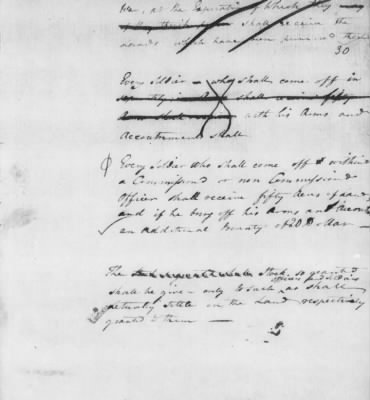 War, at the Expiration of which they may
shall receive the
awards which have been promised
30
Every Soldier who shall come off in
shall receive fifty
with his Arms and
Accoutrements shall
Every Soldier who shall come off without
a Commissiond or non Commissiond
Officer shall receive fifty Acres of Land,
and if he bring off his Arms and
an additional Bounty of 20 Dollars —
The Stock so granted
officers and Soldiers
shall be given only to such as shall
actually settle on the Land respectively
granted to them —